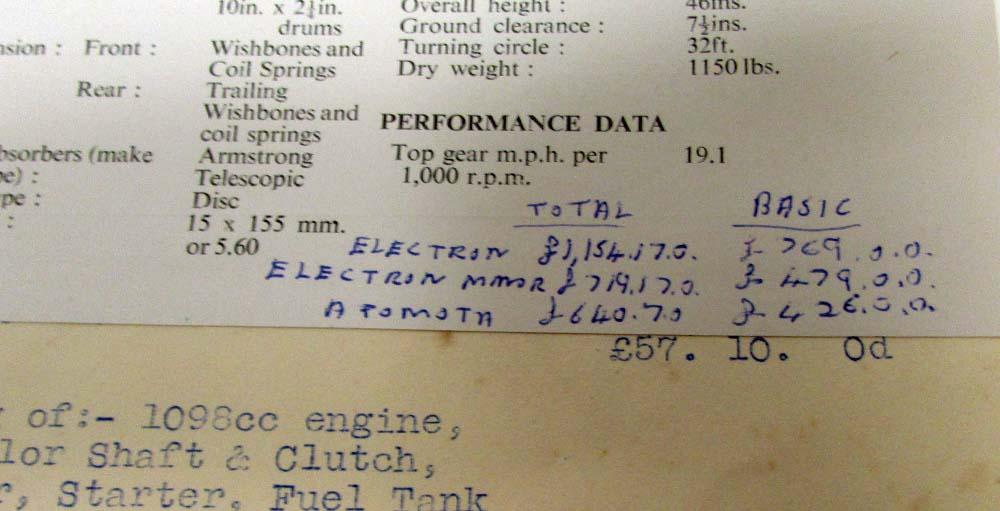 10in. x 2¼in. Overall height : 46ins.
drums Ground clearance : 7½ins.
nsion : Front : Wishbones and Turning circle : 32ft.
Coil Springs Dry weight : 1150 lbs.
Rear : Trailing
Wishbones and
coil springs PERFORMANCE DATA
bsorbers (make Armstrong Top gear m.p.h. per 19.1
pe) : Telescopic 1,000 r.p.m.
pe : Disc
: 15 x 155 mm.
or 5.60
TOTAL BASIC
ELECTRON £1,154.17.0. £ 769.0.0.
ELECTRON MINOR £719.17.0. £ 479.0.0.
ATOMOTA £640.7.0 £ 426.0.0.
£57. 10. 0d
of:- 1098cc engine,
lor Shaft & Clutch,
r, Starter. Fuel Tank